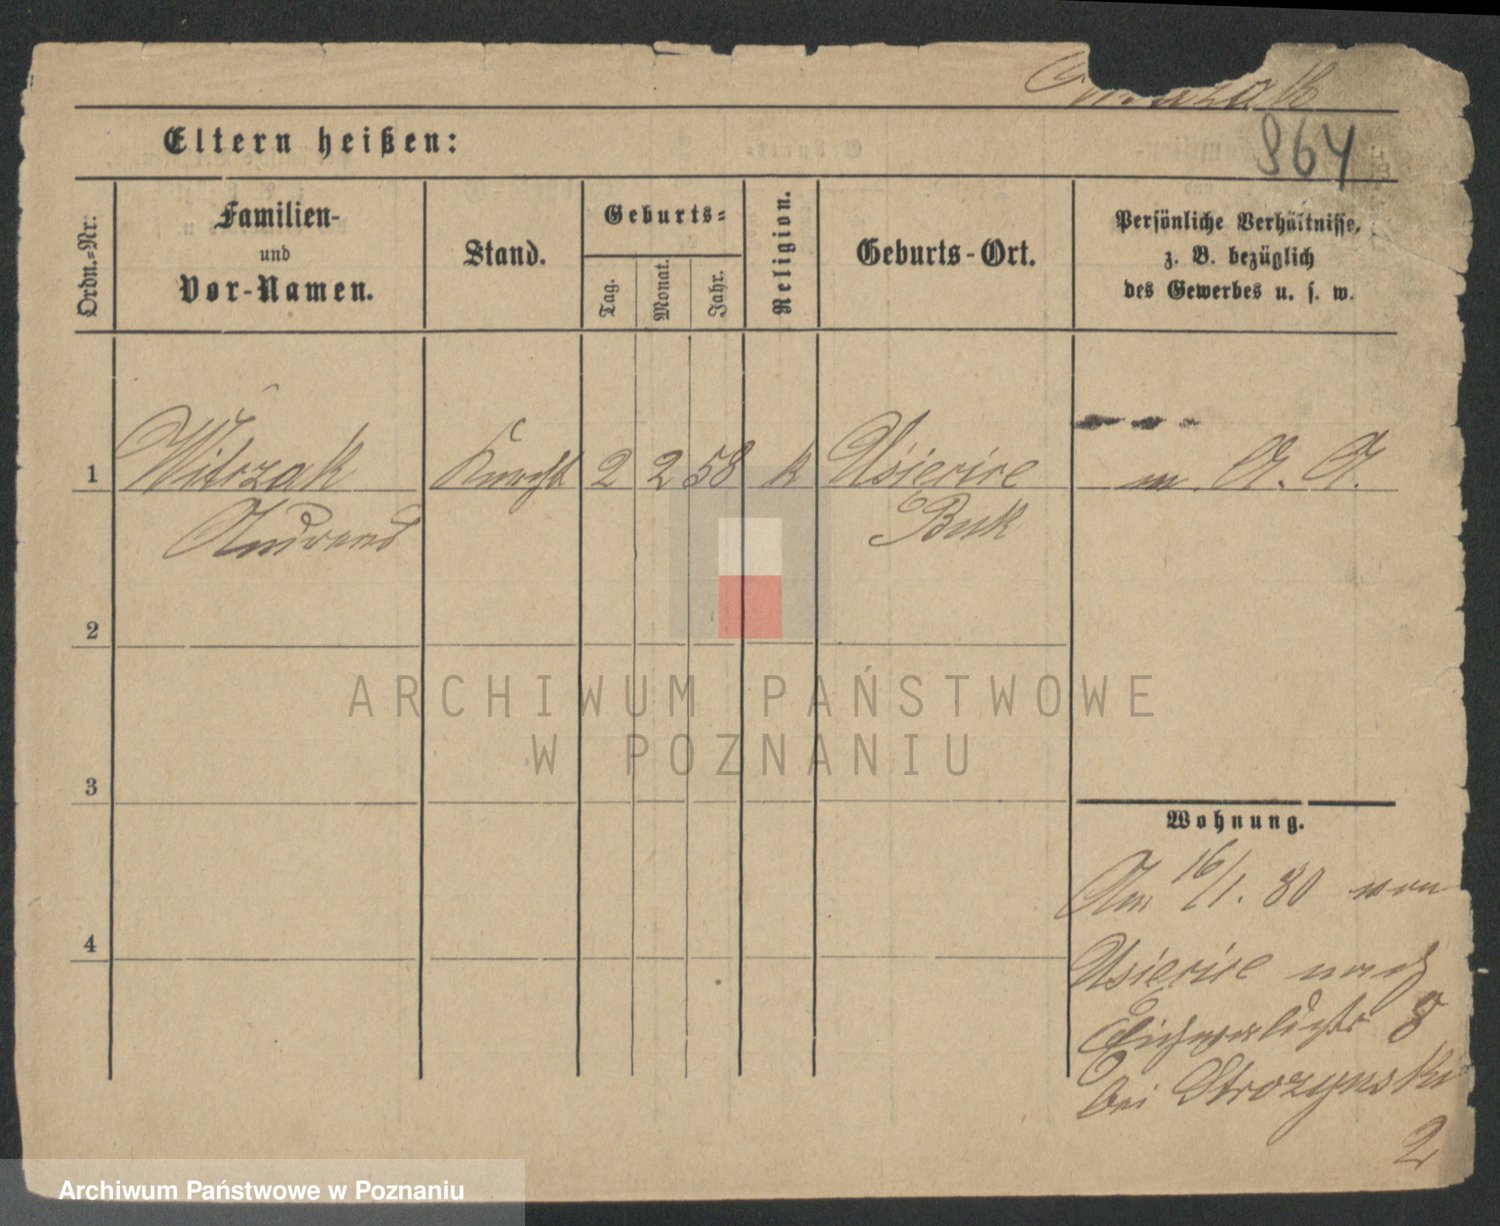 964
Eltern heißen:
Ordn.-Nr:
Familien-
und
Vor-Namen.
Stand.
Geburts-
Tag.
Monat.
Jahr.
Religion.
Geburts-Ort.
Persönliche Verhältnisse,
z. B. bezüglich
des Gewerbes u. s. w.
1 Witczak Knecht 2 2 58 k
Buk
2
3
4
Wohnung.
Am 16/1. 80 von
nach
8
bei Strozynski
2
ARCHIWUM PAŃSTWOWE
W POZNANIU
Archiwum Państwowe w Poznaniu